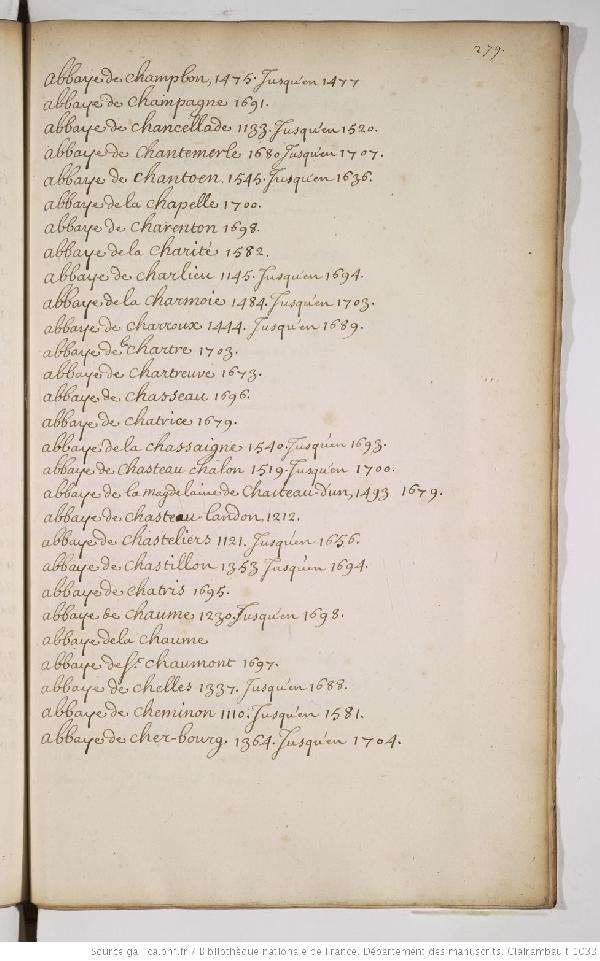 279.
abbaye de champbon, 1475. Jusqu'en 1477
abbaye de champagne 1691.
abbaye de chancellade 1133. Jusqu'en 1520.
abbaye de chantemerle 1680 Jusqu'en 1707.
abbaye de chantoen, 1545. Jusqu'en 1636.
abbaye de la chapelle 1700.
abbaye de charenton 1698.
abbaye de la charité 1582.
abbaye de charlieu 1145. Jusqu'en 1694.
abbaye de la charmoie 1484. Jusqu'en 1703.
abbaye de charroux 1444. Jusqu'en 1689.
abbaye de la chartre 1703.
abbaye de chartreuve 1673.
abbaye de chasseau 1696.
abbaye de chatrice 1679.
abbaye de la chassaigne 1540. Jusqu'en 1693.
abbaye de chasteau chalon 1519. Jusqu'en 1700.
abbaye de la magdelaine de Chasteau-dun, 1493 1679.
abbaye de chasteau-landon, 1212.
abbaye de chasteliers 1121. Jusqu'en 1656.
abbaye de chastillon 1353 Jusqu'en 1694.
abbaye de chatris 1695.
abbaye de chaume 1230. Jusqu'en 1698.
abbaye de la chaume
abbaye de St. chaumont 1697.
abbaye de chelles 1337. Jusqu'en 1688.
abbaye de cheminon 1110. Jusqu'en 1581.
abbaye de cher-bourg. 1364. Jusqu'en 1704.
Source gallica.bnf.fr / Bibliothèque nationale de France. Département des manuscrits. Clairambault 1033